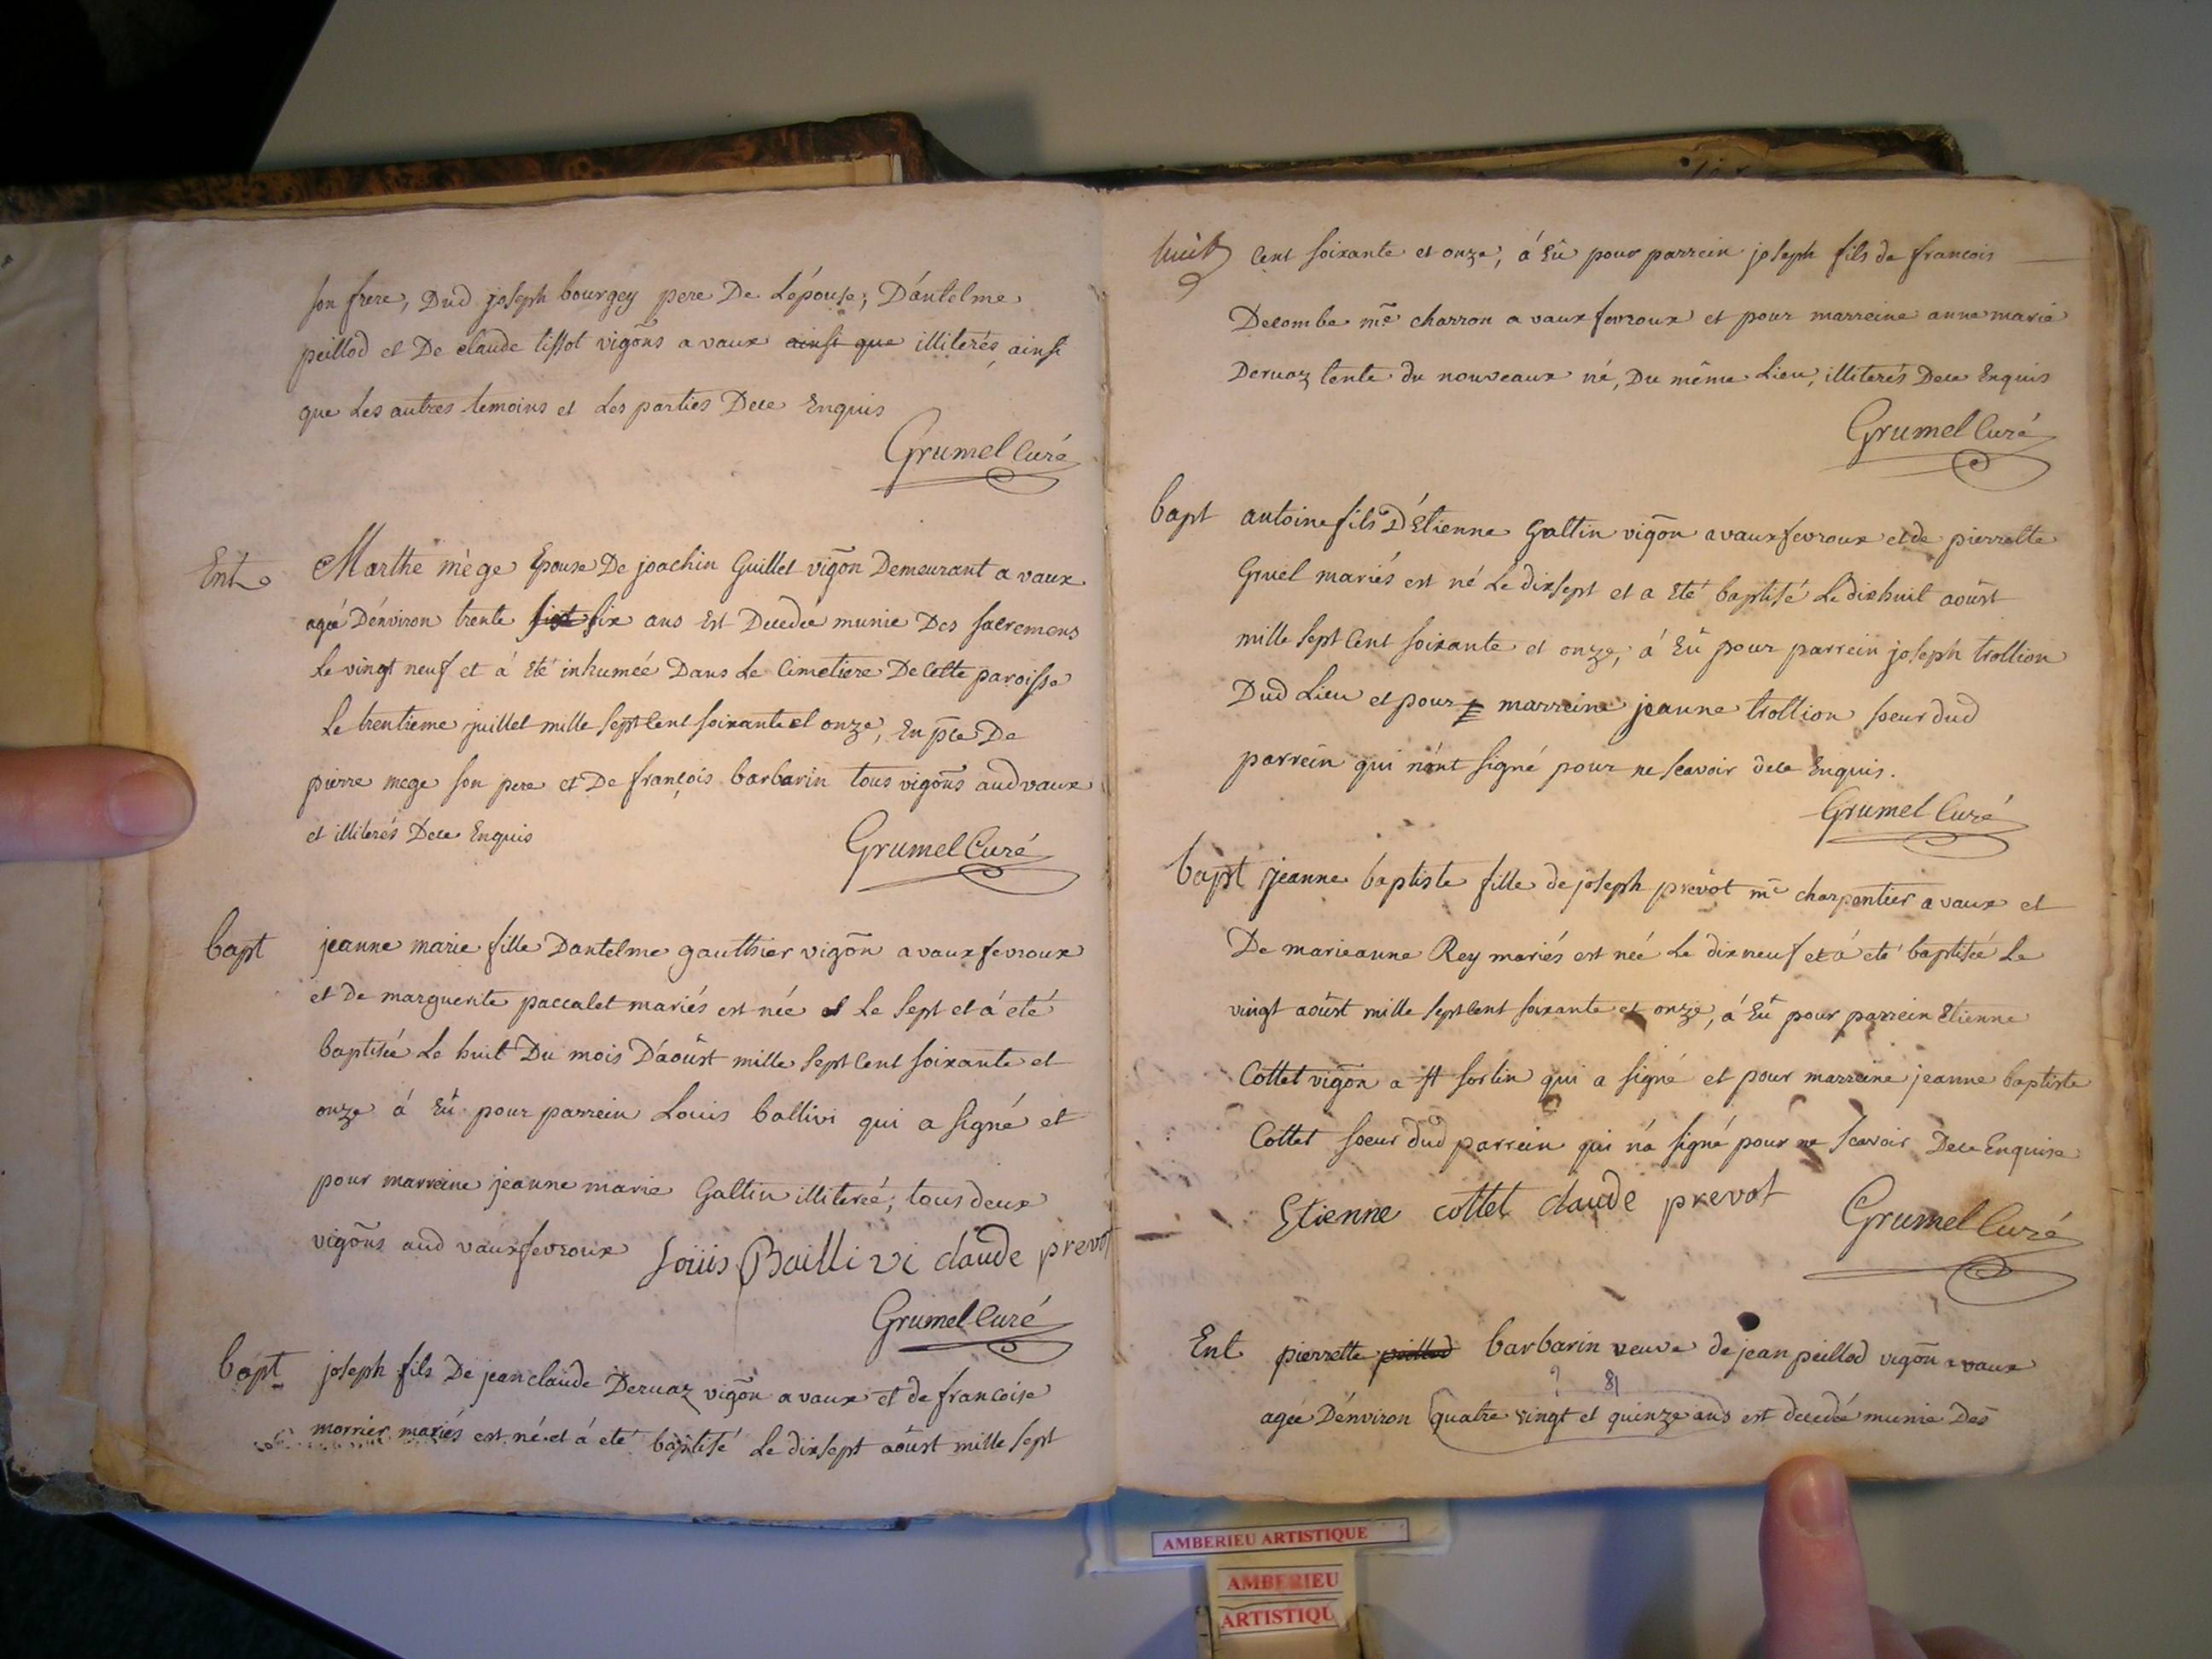 son frere, Dud joseph bourgey pere De Lépouse; D'antelme
peillod et De claude tissot vigõns a vaux ainsi que illiterés, ainsi
que Les autres temoins et Les parties Dece Enquis
Grumel Curé
Ent
Marthe mège Epouse De joachin Guillet vigõn Demeurant a vaux
ageé D'énviron trente sept six ans Est Decedée munie Des sacremens
Le vingt neuf et á eté inhumeé Dans Le Cimetiere De Cette paroisse
Le trentieme juillet mille sept Cent soixante et onze, En pce De
pierre mege son pere et De françois barbarin tous vigõns aud vaux
et illiterés Dece Enquis
Grumel Curé
bapt
jeanne marie fille Dantelme gauthier vigõn a vaux fevroux
et de marguerite paccalet mariés est née Le sept et á eté
baptiseé Le huit Du mois D'août mille sept Cent soixante et
onze á Eû pour parrein Louis ballivi qui a signé et
pour marreine jeanne marie Galtin illitereé; tous deux
vigõns aud vaux fevroux Loüis Baillivi claude prevot
Grumel Curé
bapt
joseph fils De jean claude Deruaz vigõn a vaux et de francoise
morrier mariés est né et á eté baptisé Le dixsept août mille sept
huit
Cent soixante et onze, á Eû pour parrein joseph fils de francois
Decombe mẽ charron a vaux fevroux et pour marreine anne marie
Deruaz tente du nouveaux né, Du même Lieu, illiterés Dece Enquis
Grumel Curé
bapt
antoine fils D'Etienne Galtin vigõn a vaux fevroux et de pierrette
Gruel mariés est né Le dixsept et a Eté baptisé Le dixhuit août
mille sept Cent soixante et onze, á Eû pour parrein joseph trollion
Dud Lieu et pour marreine jeanne trollion soeur dud
parrein qui n'ont signé pour ne scavoir dece Enquis.
Grumel Curé
bapt
jeanne baptiste fille de joseph prevôt mẽ charpentier a vaux et
De marieanne Rey mariés est neé Le dixneuf et á eté baptisée Le
vingt août mille sept Cent soixante et onze, á Eû pour parrein Etienne
Cottet vigõn a st sorlin qui a signé et pour marreine jeanne baptiste
Cottet soeur dud parrein qui n'a signé pour ne scavoir Dece Enquise
Etienne cottet claude prevot
Grumel Curé
Ent
pierrette peillod barbarin veuve de jean peillod vigõn a vaux
? 81
ageé D'énviron quatre vingt et quinze ans est decedée munie Des
AMBERIEU ARTISTIQUE
AMBERIEU
ARTISTIQU